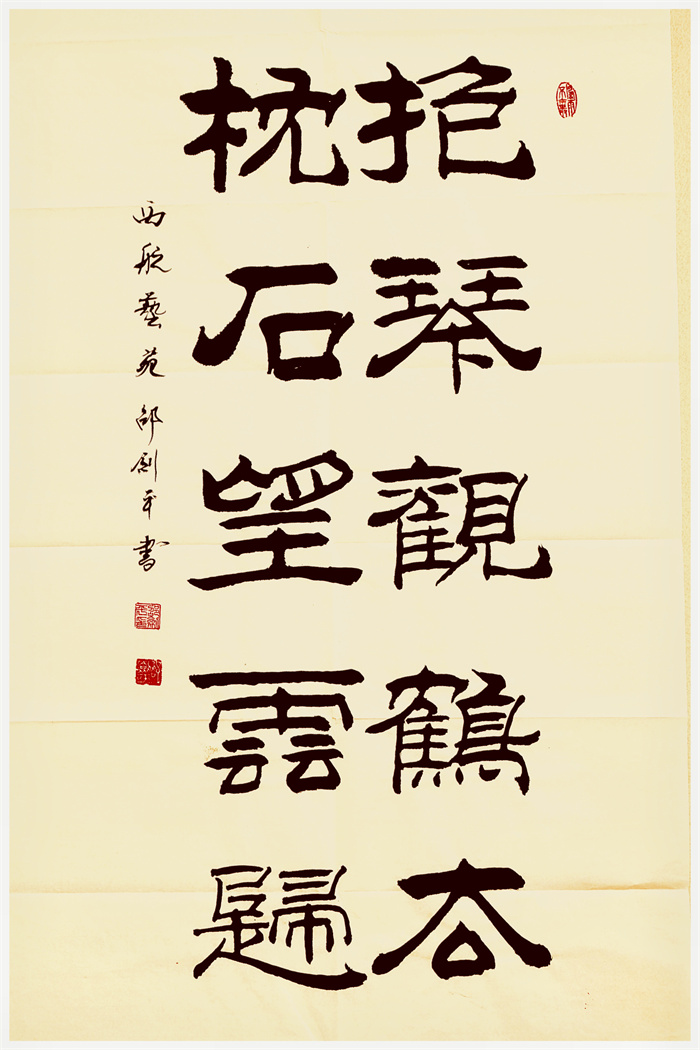 抱琴觀鶴去
枕石望雲歸
西航藝苑邵劍平書